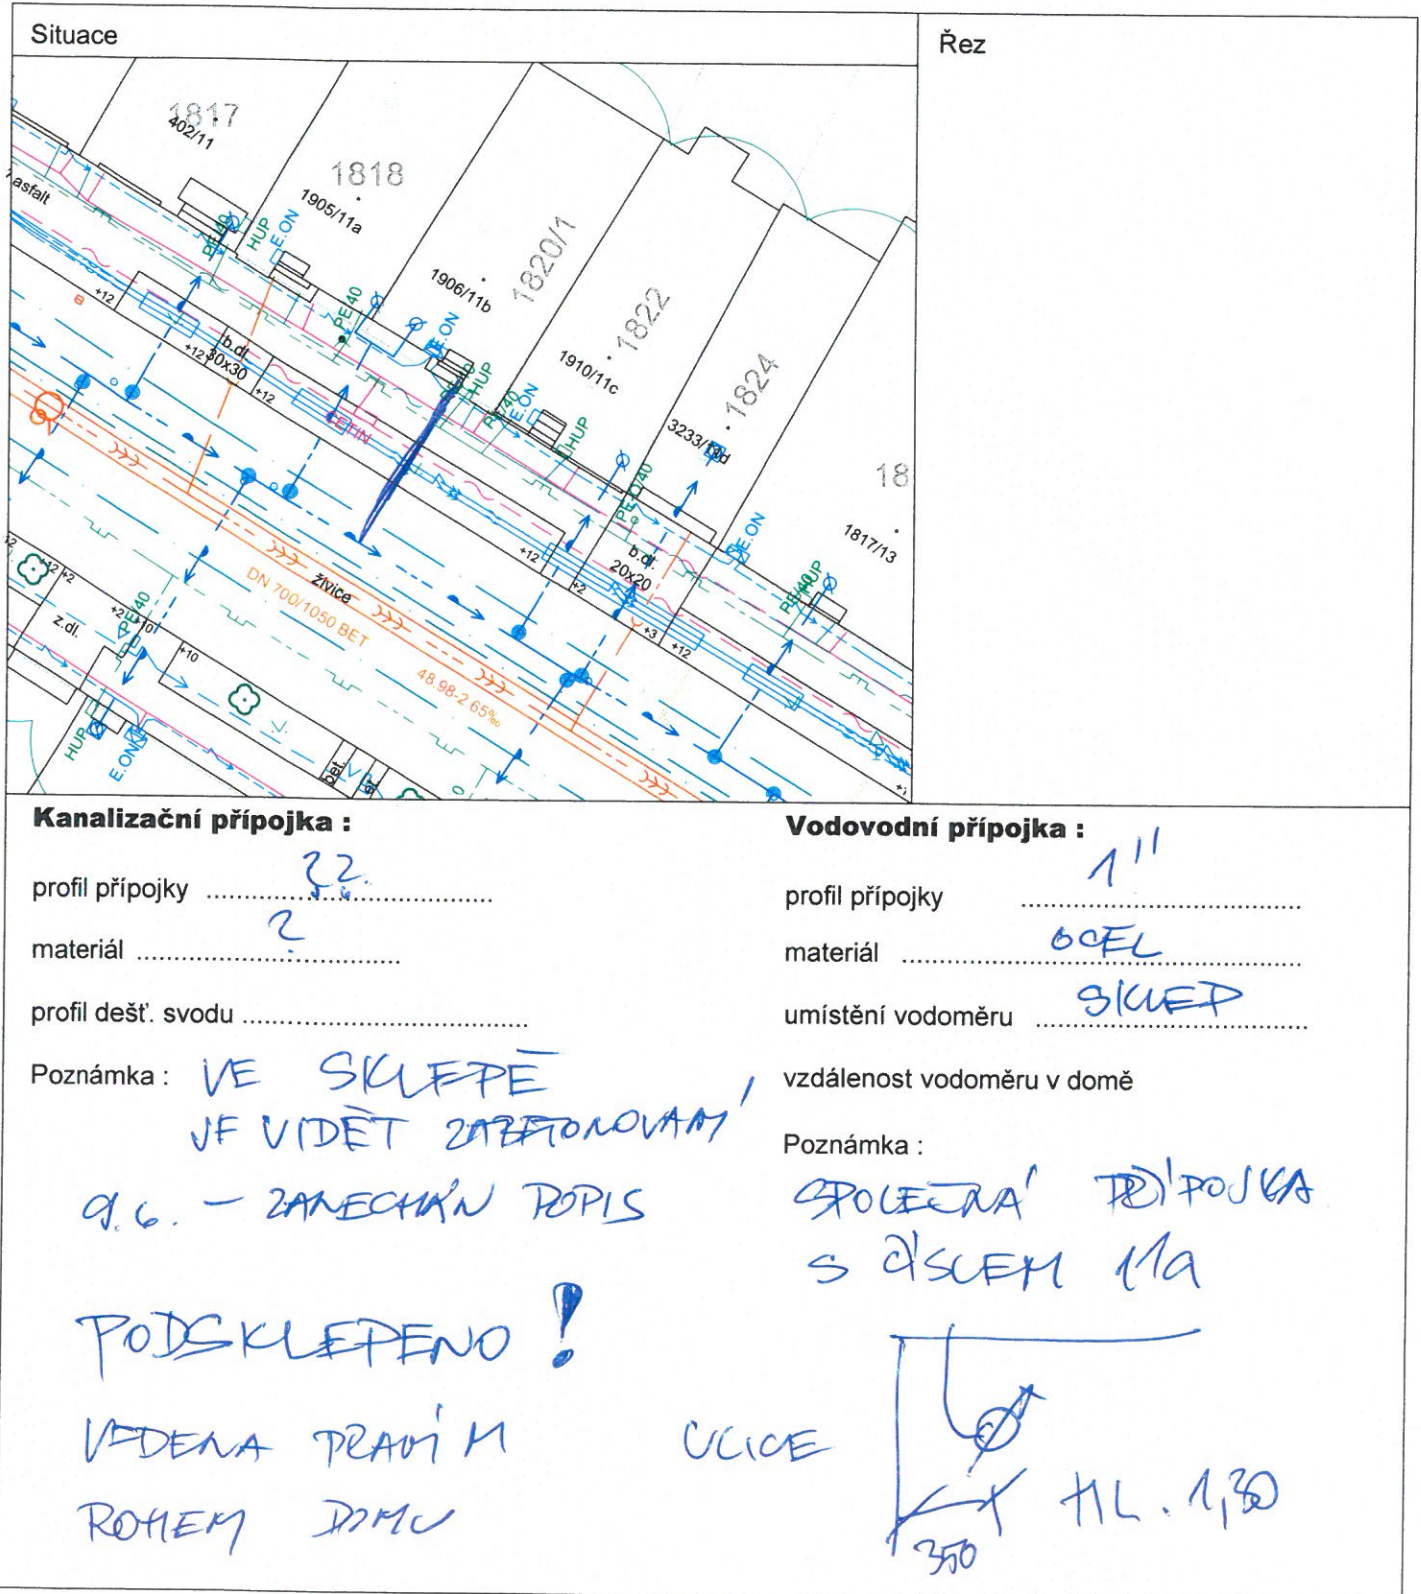 Situace
Řez
1817
402/11
1818
1905/11a
1820/1
1906/11b
1822
1910/11c
1824
3233/11d
18
1817/13
asfalt
PE/40
HUP
E.ON
PE/40
E.ON
HUP
PE/40
E.ON
HUP
PE/40
E.ON
PE/40
HUP
+12
+12
b.dl.
30x30
+12
CETIN
+12
+2
b.dl.
20x20
+3
+12
živice
DN 700/1050 BET
48.98-2.65‰
+12
+2
+2
+10
PE/40
z.dl.
+10
HUP
E.ON
bet.
Kanalizační přípojka :
profil přípojky ??
materiál ?
profil dešť. svodu
Poznámka : VE SKLEPĚ
JE VIDĚT ZABETONOVANÝ
9.6. - ZANECHÁN POPIS
PODSKLEPENO !
VEDENA PRAVÝM
ROHEM DOMU
Vodovodní přípojka :
profil přípojky 1"
materiál OCEL
umístění vodoměru SKLEP
vzdálenost vodoměru v domě
Poznámka :
SPOLEČNÁ PŘÍPOJKA
S ČÍSLEM 11a
ULICE
HL. 1,30
350